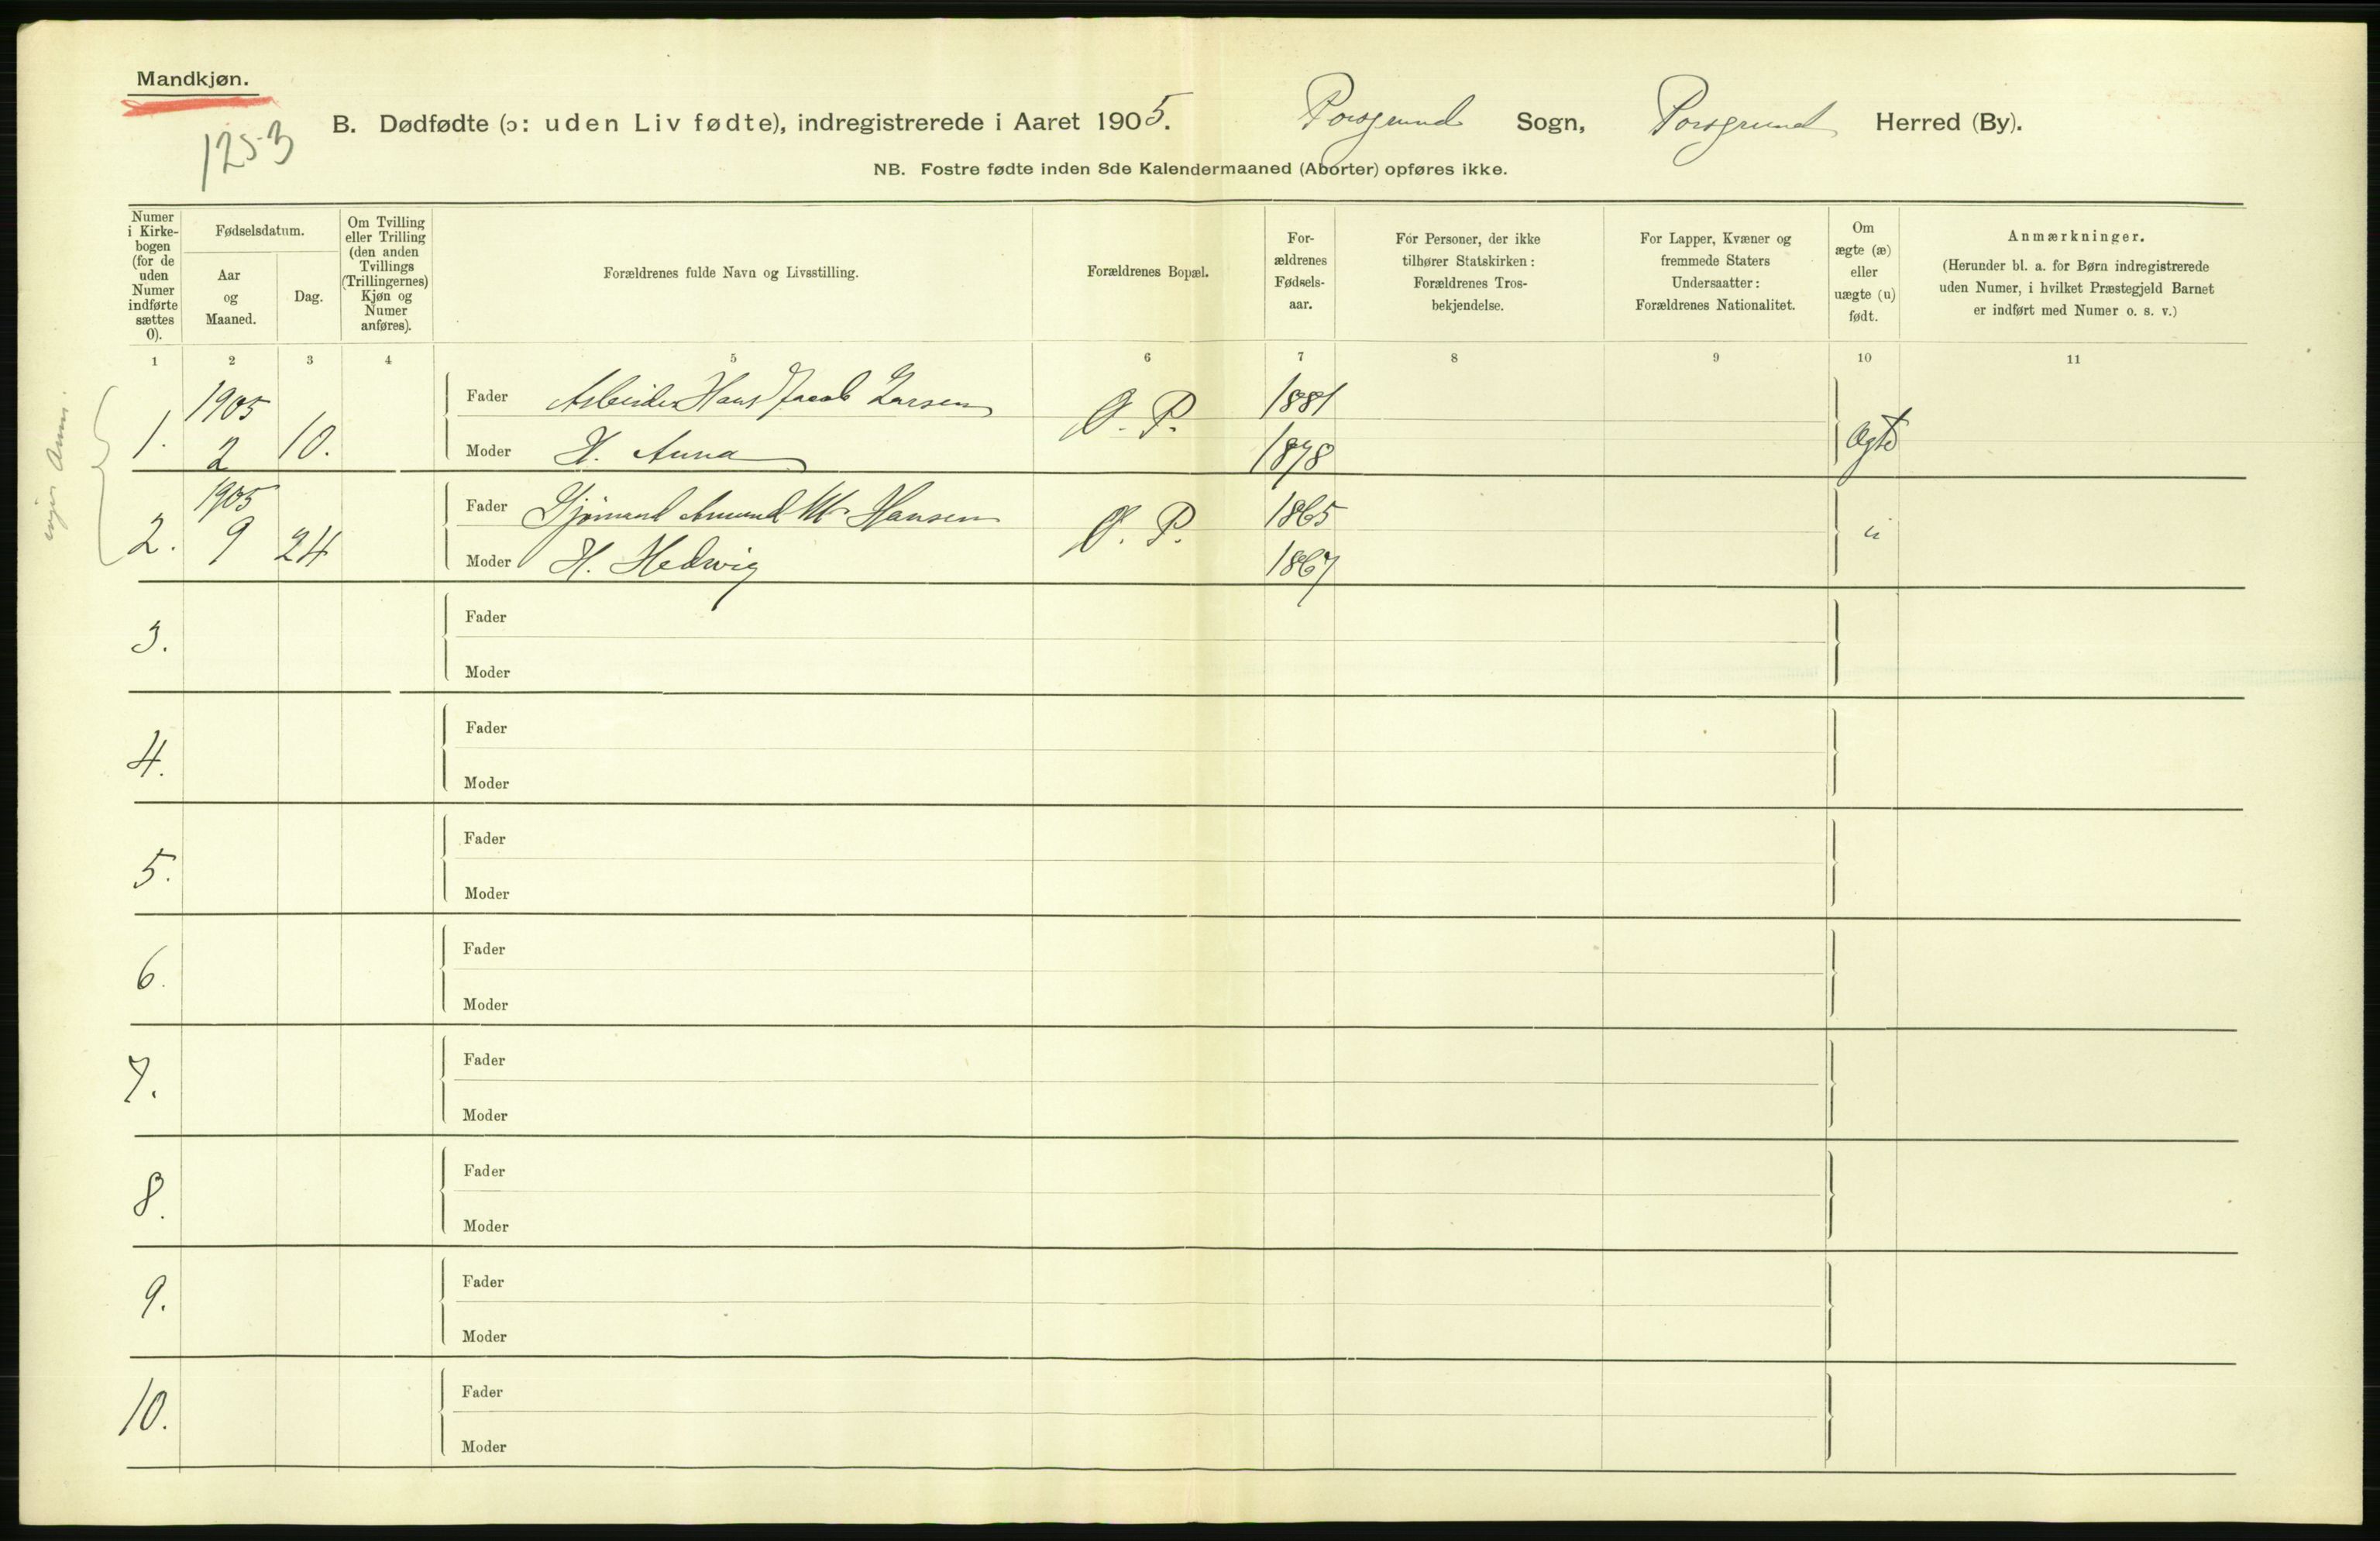 Mandkjøn.
1253
B. Dødfødte (ɔ: uden Liv fødte), indregistrerede i Aaret 1905. Porsgrund Sogn, Porsgrund Herred (By).
NB. Fostre fødte inden 8de Kalendermaaned (Aborter) opføres ikke.
Numer
i Kirke-
bogen
(for de
uden
Numer
indførte
sættes
0).
Fødselsdatum.
Aar
og
Maaned.
Dag.
Om Tvilling
eller Trilling
(den anden
Tvillings
(Trillingernes)
Kjøn og
Numer
anføres).
Forældrenes fulde Navn og Livsstilling.
Forældrenes Bopæl.
For-
ældrenes
Fødsels-
aar.
For Personer, der ikke
tilhører Statskirken:
Forældrenes Tros-
bekjendelse.
For Lapper, Kvæner og
fremmede Staters
Undersaatter:
Forældrenes Nationalitet.
Om
ægte (æ)
eller
uægte (u)
født.
Anmærkninger.
(Herunder bl. a. for Børn indregistrerede
uden Numer, i hvilket Præstegjeld Barnet
er indført med Numer o. s. v.)
1 2 3 4 5 6 7 8 9 10 11
1905
Fader Arbeider Hans Jacob Larsen 1881
1. 2 10. Ø. P. Ægte
Moder H. Anna 1878
1905
Fader Sjømand Amund M. Hansen 1865
2. 9 24 Ø. P. "
Moder H. Hedwig 1867
Fader
3.
Moder
Fader
4.
Moder
Fader
5.
Moder
Fader
6.
Moder
Fader
7.
Moder
Fader
8.
Moder
Fader
9.
Moder
Fader
10.
Moder